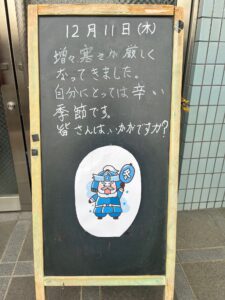 12月11日(木)
増々寒さが厳しく
なってきました。
自分にとっては辛い
季節です。
皆さんはいかがですか?